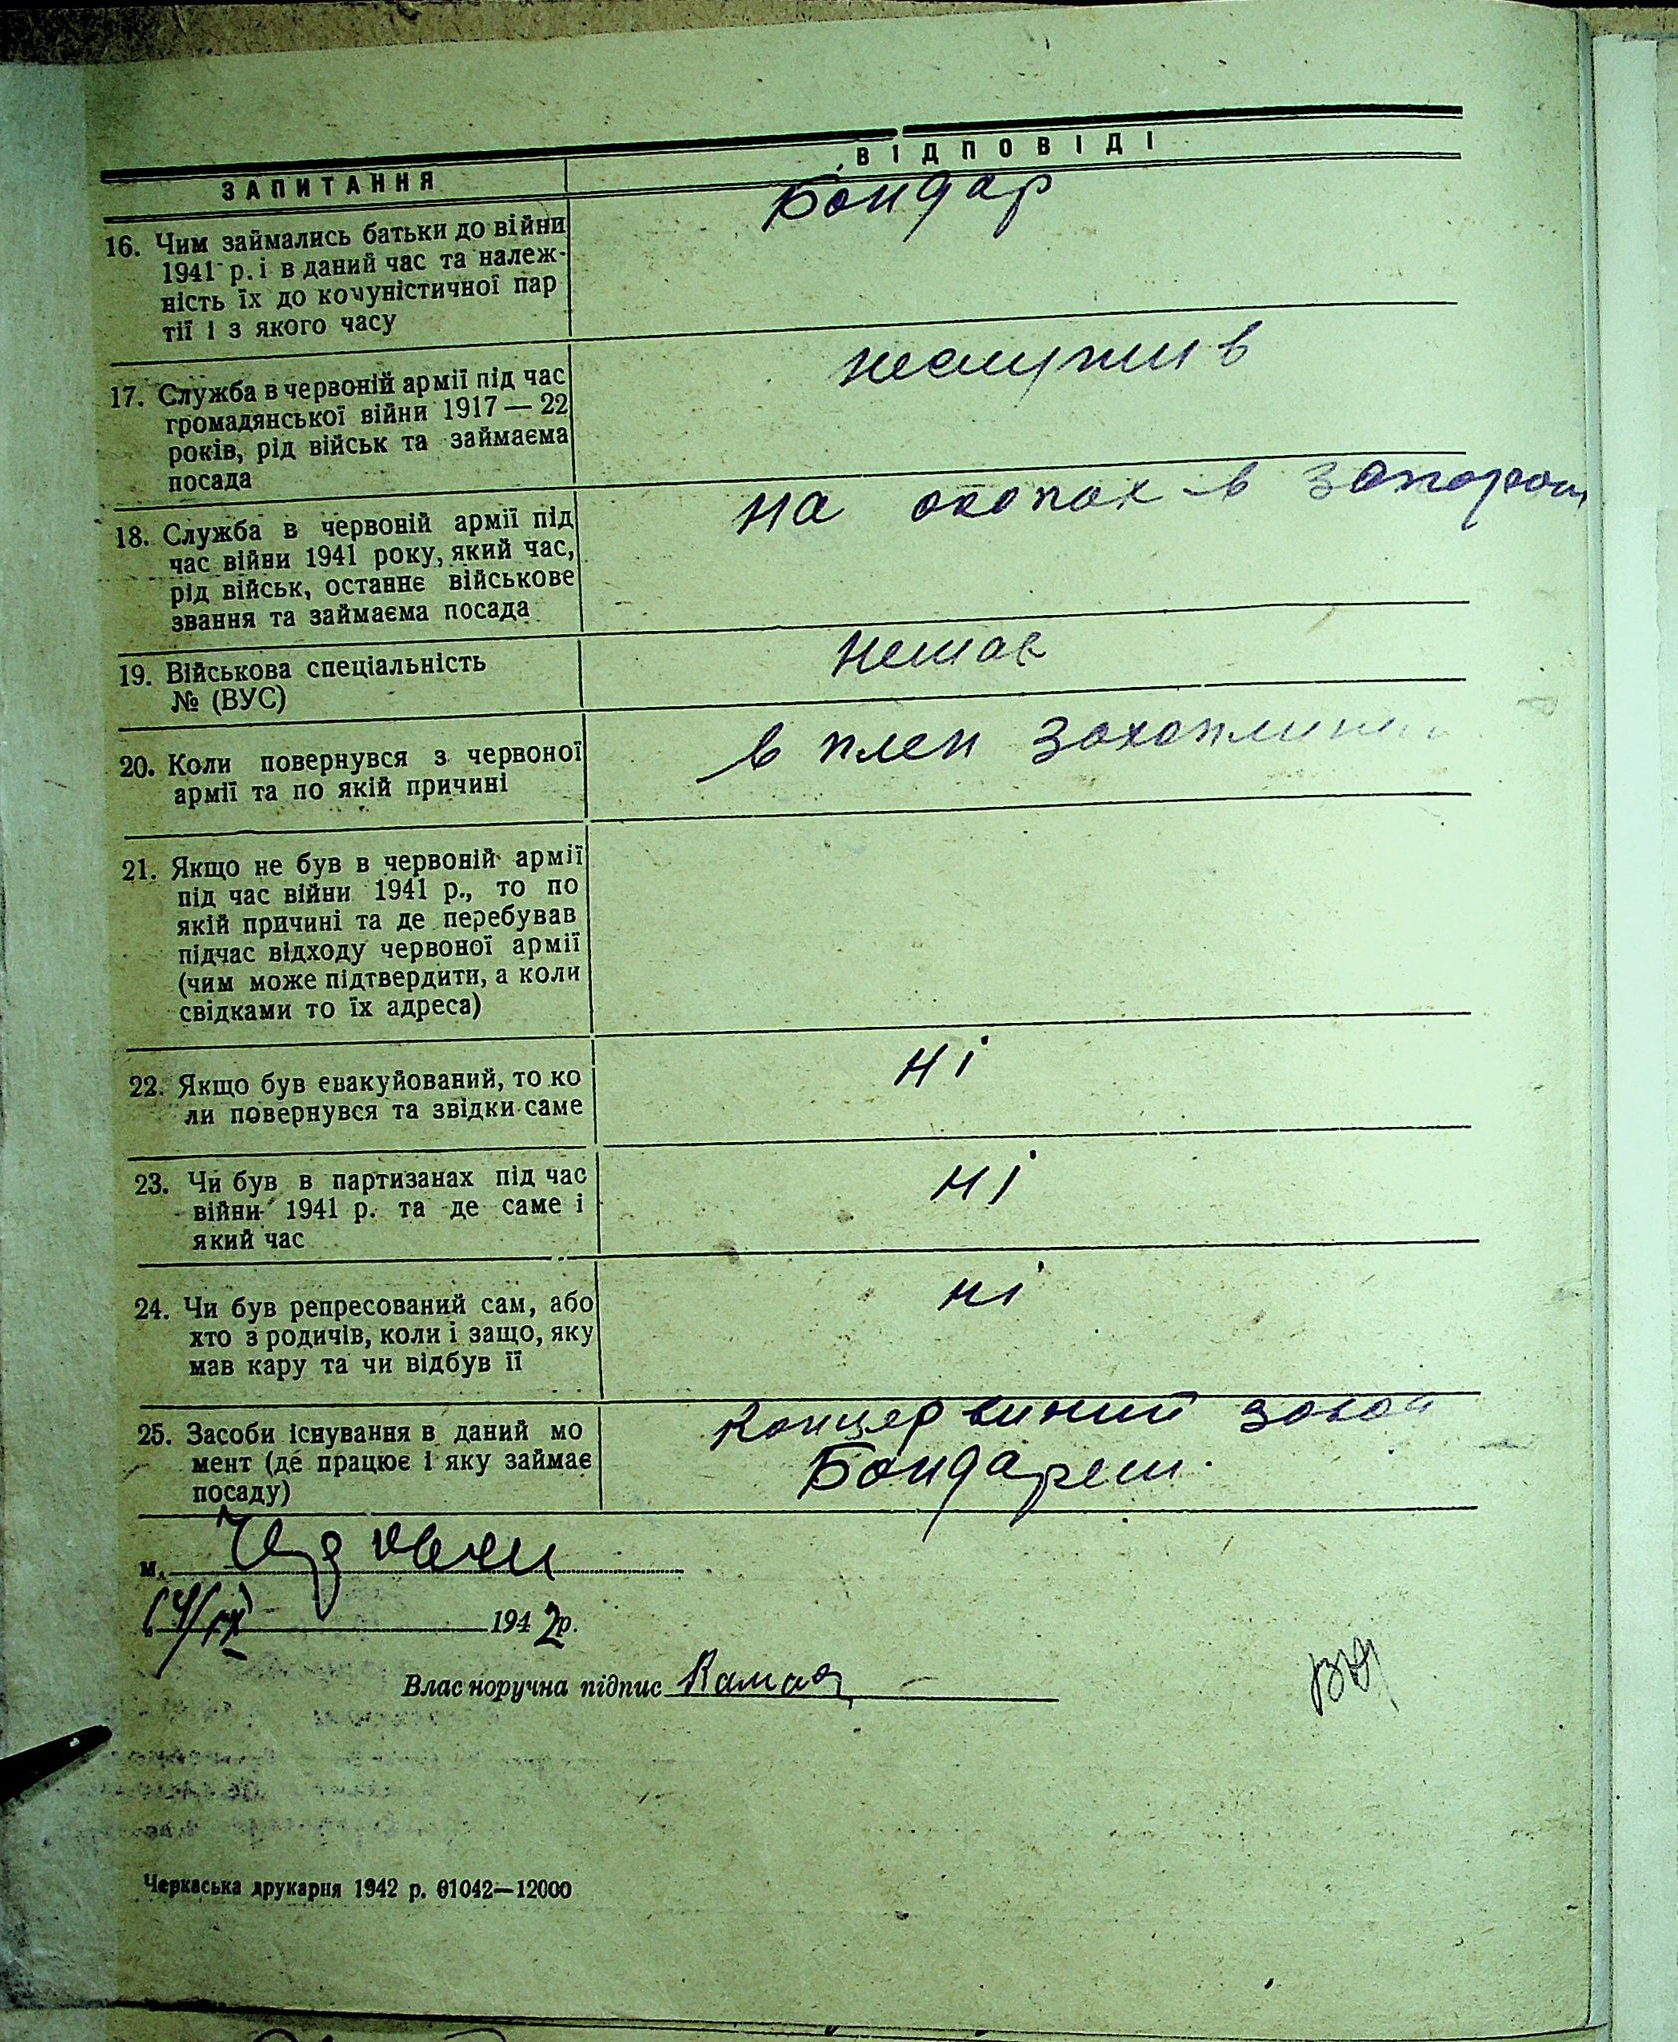 ЗАПИТАННЯ
ВІДПОВІДІ
16. Чим займались батьки до війни
1941 р. і в даний час та належ-
ність їх до комуністичної пар
тії і з якого часу
Бондар
17. Служба в червоній армії під час
громадянської війни 1917 — 22
років, рід військ та займаєма
посада
неслужив
18. Служба в червоній армії під
час війни 1941 року, який час,
рід військ, останнє військове
звання та займаєма посада
на окопах в
19. Військова спеціальність
№ (ВУС)
немає
20. Коли повернувся з червоної
армії та по якій причині
в плен
21. Якщо не був в червоній армії
під час війни 1941 р., то по
якій причині та де перебував
підчас відходу червоної армії
(чим може підтвердити, а коли
свідками то їх адреса)
22. Якщо був евакуйований, то ко
ли повернувся та звідки саме
ні
23. Чи був в партизанах під час
війни 1941 р. та де саме і
який час
ні
24. Чи був репресований сам, або
хто з родичів, коли і защо, яку
мав кару та чи відбув її
ні
25. Засоби існування в даний мо
мент (де працює і яку займає
посаду)
Концервиний завод
Бондарем.
м.
194 2 р.
Власноручна підпис
Черкаська друкарня 1942 р. 01042—12000